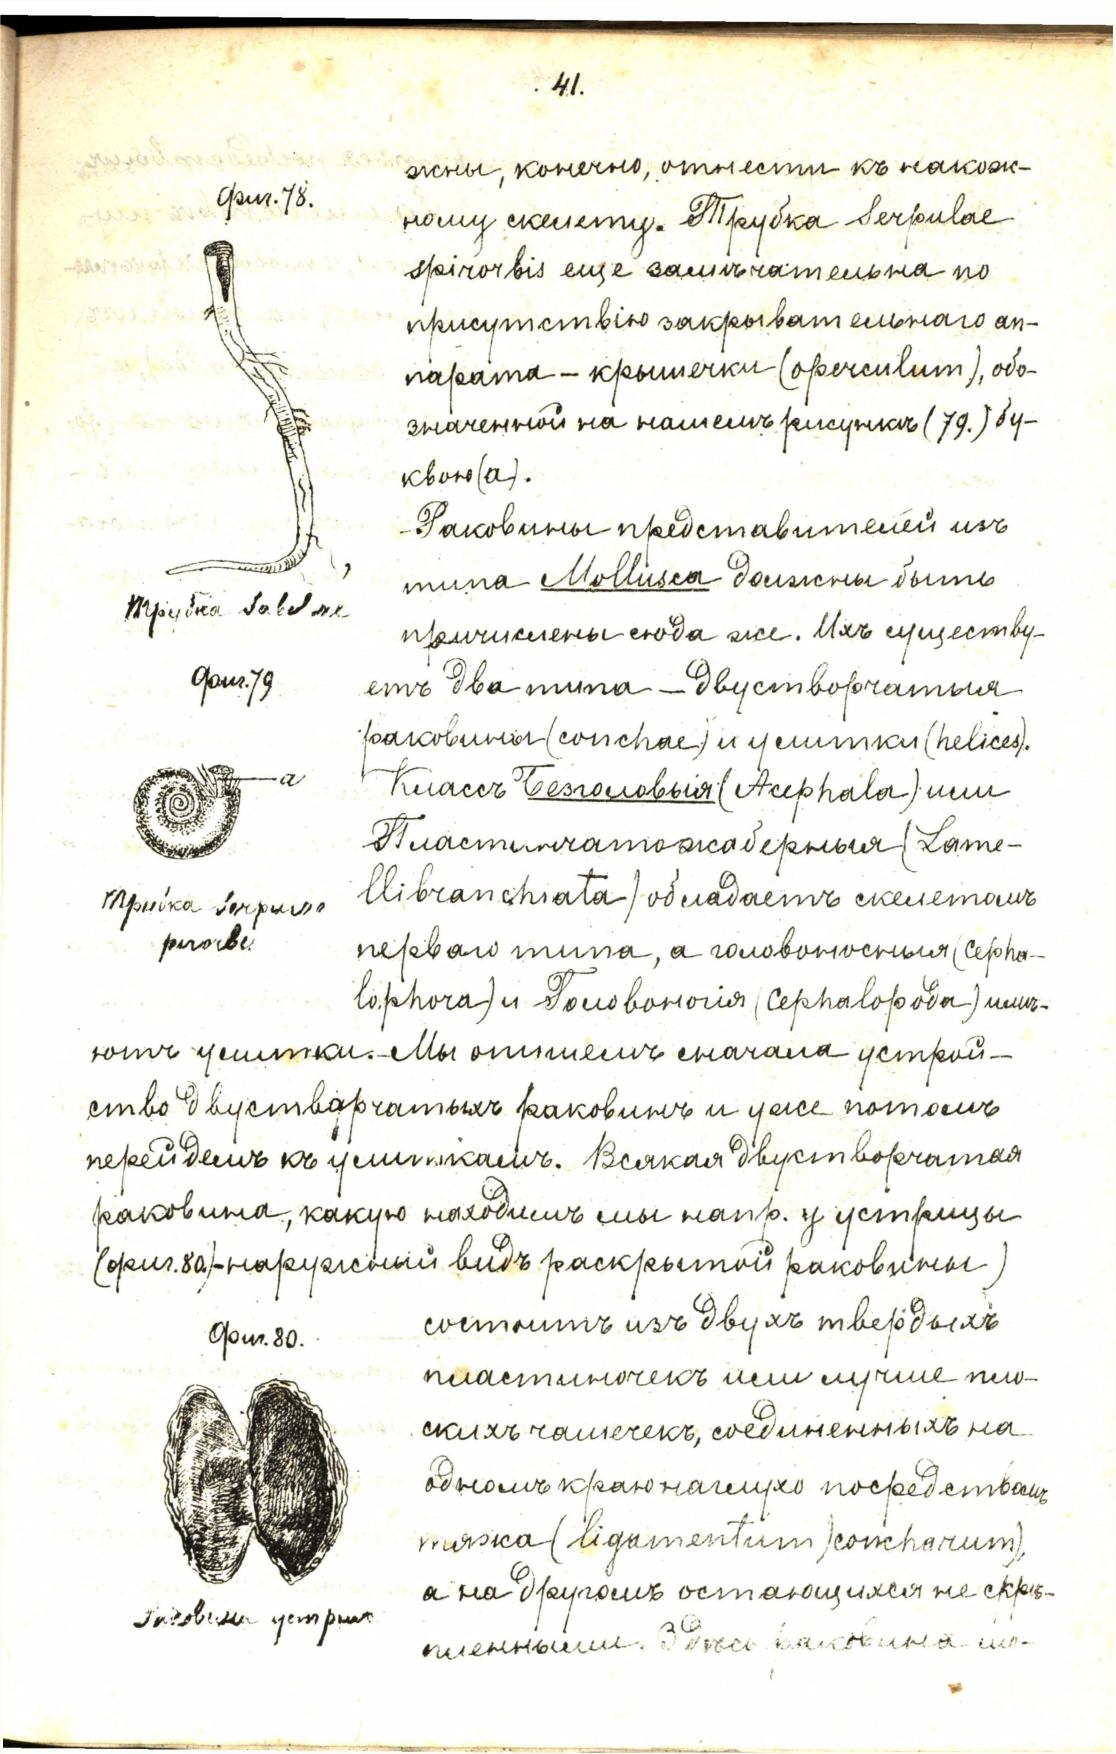 41.
жны, конечно, отнести къ накож-
ному скелету. Трубка Serpulae
spirorbis еще замѣчательна по
присутствію закрывательнаго ап-
парата – крышечки (operculum), обо-
значенной на нашемъ рисункѣ (79.) бу-
квою (а).
Раковины представителей изъ
типа Mollusca должны быть
причислены сюда же. Ихъ существу-
етъ два типа – двустворчатыя
раковины (conchae) и улитки (helices).
Классъ Безголовыя (Acephala) или
Пластинчатожаберныя (Lame-
llibranchiata) обладаетъ скелетомъ
перваго типа, а головоносныя (Cepha-
lophora) и Головоногія (Cephalopoda) имѣ-
ютъ улитки. Мы опишемъ сначала устрой-
ство двустворчатыхъ раковинъ и уже потомъ
перейдемъ къ улиткамъ. Всякая двустворчатая
раковина, какую находимъ мы напр. у устрицы
(фиг. 80.) – наружный видъ раскрытой раковины)
состоитъ изъ двухъ твердыхъ
пластиночекъ или лучше пло-
скихъ чашечекъ, соединенныхъ на
одномъ краю наглухо посредствомъ
тяжа (ligamentum) concharum),
а на другомъ остающихся не скрѣ-
пленными. Здѣсь раковина мо-
Фиг. 78.
Трубка Sabellae
Фиг. 79
а
Трубка
Фиг. 80.
Раковина устрицы